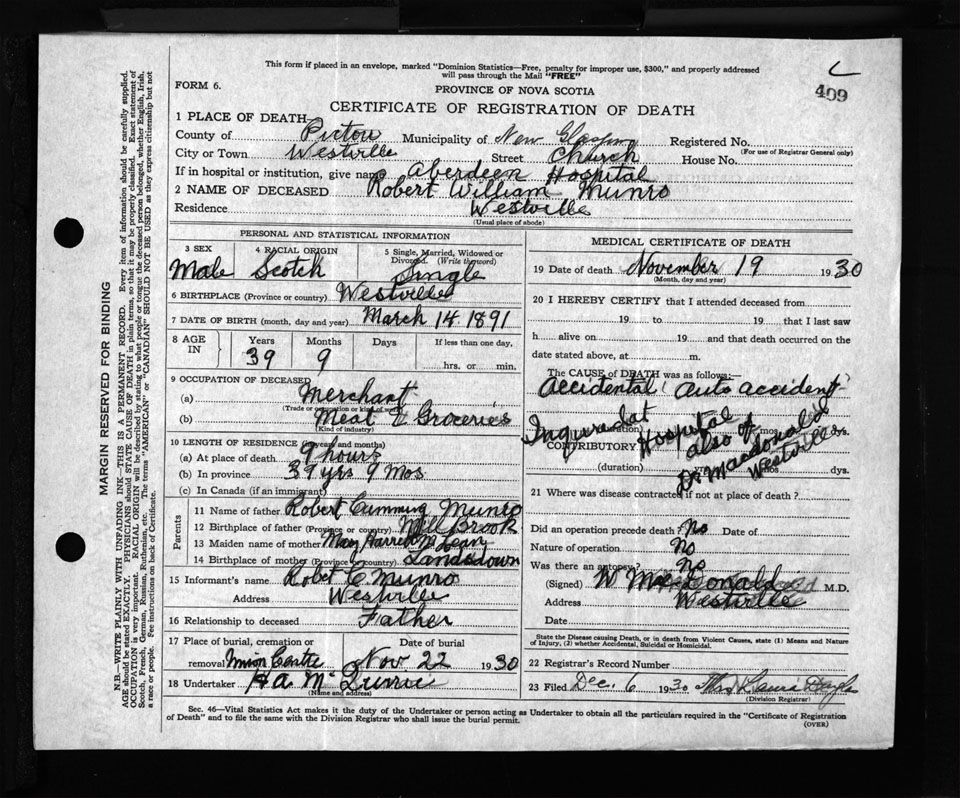 This form if placed in an envelope, marked "Dominion Statistics—Free, penalty for improper use, $300," and properly addressed
will pass through the Mail "FREE"
409
FORM 6.
PROVINCE OF NOVA SCOTIA
CERTIFICATE OF REGISTRATION OF DEATH
1 PLACE OF DEATH
County of Pictou Municipality of New Glasgow Registered No.
(For use of Registrar General only)
City or Town Westville Street Church House No.
If in hospital or institution, give name Aberdeen Hospital
2 NAME OF DECEASED Robert William Munro
Residence Westville
(Usual place of abode)
PERSONAL AND STATISTICAL INFORMATION
3 SEX 4 RACIAL ORIGIN 5 Single, Married, Widowed or Divorced. (Write the word)
Male Scotch Single
6 BIRTHPLACE (Province or country) Westville
7 DATE OF BIRTH (month, day and year) March 14 1891
8 AGE IN Years Months Days If less than one day,
39 9 hrs. or min.
9 OCCUPATION OF DECEASED
(a) Merchant
(Trade or occupation or kind of work)
(b) Meat & Groceries
(Kind of industry)
10 LENGTH OF RESIDENCE (in years and months)
(a) At place of death 9 hours
(b) In province 39 yrs 9 Mos
(c) In Canada (if an immigrant)
Parents
11 Name of father Robert Cumming Munro
12 Birthplace of father (Province or country) Mill Brook
13 Maiden name of mother Mary Harret McLean
14 Birthplace of mother (Province or country) Landsdown
15 Informant's name Robet C Munro
Address Westville
16 Relationship to deceased Father
17 Place of burial, cremation or Date of burial
removal Union Centre Nov 22 1930
18 Undertaker H A
(Name and address)
MEDICAL CERTIFICATE OF DEATH
19 Date of death November 19 1930
(Month, day and year)
20 I HEREBY CERTIFY that I attended deceased from
19 to 19 that I last saw
h alive on 19 and that death occurred on the
date stated above, at m.
The CAUSE of DEATH was as follows:
Accidental (Auto accident)
Inquire at Hospital
also of
Dr Macdonald
Westville
(duration) mos. ds.
CONTRIBUTORY
(duration) mos. dys.
21 Where was disease contracted if not at place of death?
Did an operation precede death? No Date of
Nature of operation No
Was there an autopsy? No
(Signed) W McDonald M.D.
Address Westville
Date
State the Disease causing Death, or in death from Violent Causes, state (1) Means and Nature
of Injury, (2) whether Accidental, Suicidal or Homicidal.
22 Registrar's Record Number
23 Filed Dec. 6 1930
(Division Registrar)
Sec. 46—Vital Statistics Act makes it the duty of the Undertaker or person acting as Undertaker to obtain all the particulars required in the "Certificate of Registration
of Death" and to file the same with the Division Registrar who shall issue the burial permit.
(OVER)
MARGIN RESERVED FOR BINDING
N.B.—WRITE PLAINLY WITH UNFADING INK—THIS IS A PERMANENT RECORD. Every item of information should be carefully supplied.
AGE should be stated EXACTLY. PHYSICIANS should STATE CAUSE OF DEATH in plain terms, so that it may be properly classified. Exact statement of
OCCUPATION is very important. RACIAL ORIGIN will be described by stating to what people or tongue the deceased person belonged, whether English, Irish,
Scotch, French, German, Russian, Ruthenian, etc. The terms "AMERICAN" or "CANADIAN" SHOULD NOT BE USED as they express citizenship but not
a race or people. See instructions on back of Certificate.